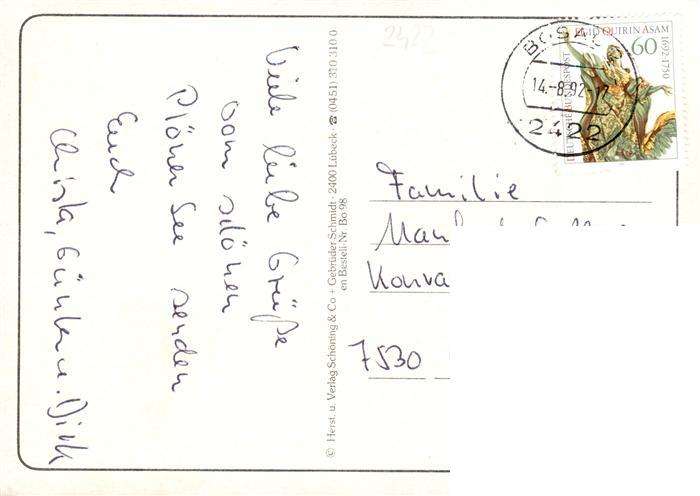 Viele liebe Grüße
vom schönen
Plöner See senden
Euch
Christa, Günter u. Dirk
© Herst. u. Verlag Schöning & Co + Gebrüder Schmidt · 2400 Lübeck · ☎ (0451) 310 310 0
en Bestell-Nr. Bo 98
2422
BOSAU
14.-8.92.-17
2422
EGID QUIRIN ASAM
1692-1750
60
DEUTSCHE BUNDESPOST
Familie
Konra
7530